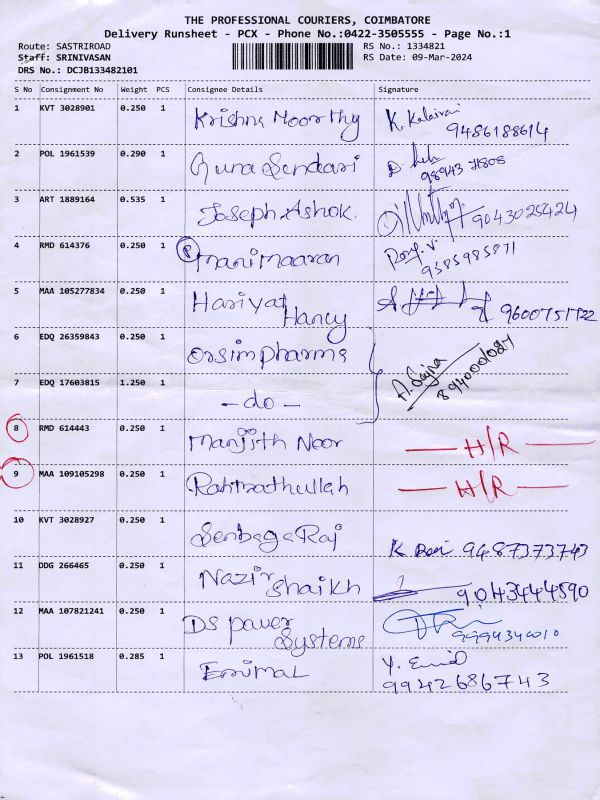 THE PROFESSIONAL COURIERS, COIMBATORE
Delivery Runsheet - PCX - Phone No.:0422-3505555 - Page No.:1
Route: SASTRIROAD RS No.: 1334821
Staff: SRINIVASAN RS Date: 09-Mar-2024
DRS No.: DCJB133482101
S No Consignment No Weight PCS Consignee Details Signature
1 KVT 3028901 0.250 1 Krishna Moorthy K. Kalairani
9486188614
2 POL 1961539 0.290 1 Guna Sundari
98943 71808
3 ART 1889164 0.535 1 Joseph Ashok. 9043025424
4 RMD 614376 0.250 1 P Manimaaran
9585985871
5 MAA 105277834 0.250 1 Hariyat
Hancy 9600751722
6 EDQ 26359843 0.250 1 Orsimpharma
7 EDQ 17603815 1.250 1 - do - A. Sajna
8 RMD 614443 0.250 1 Manjith Noor - H/R -
9 MAA 109105298 0.250 1 Rahmathullah - H/R -
10 KVT 3028927 0.250 1 Senbaga Raj K Devi 9487373743
11 DDG 266465 0.250 1 Nazir
Shaikh 9043444590
12 MAA 107821241 0.250 1 DS Power
Systems 9994340010
13 POL 1961518 0.285 1 Errimal Y.
9942686743